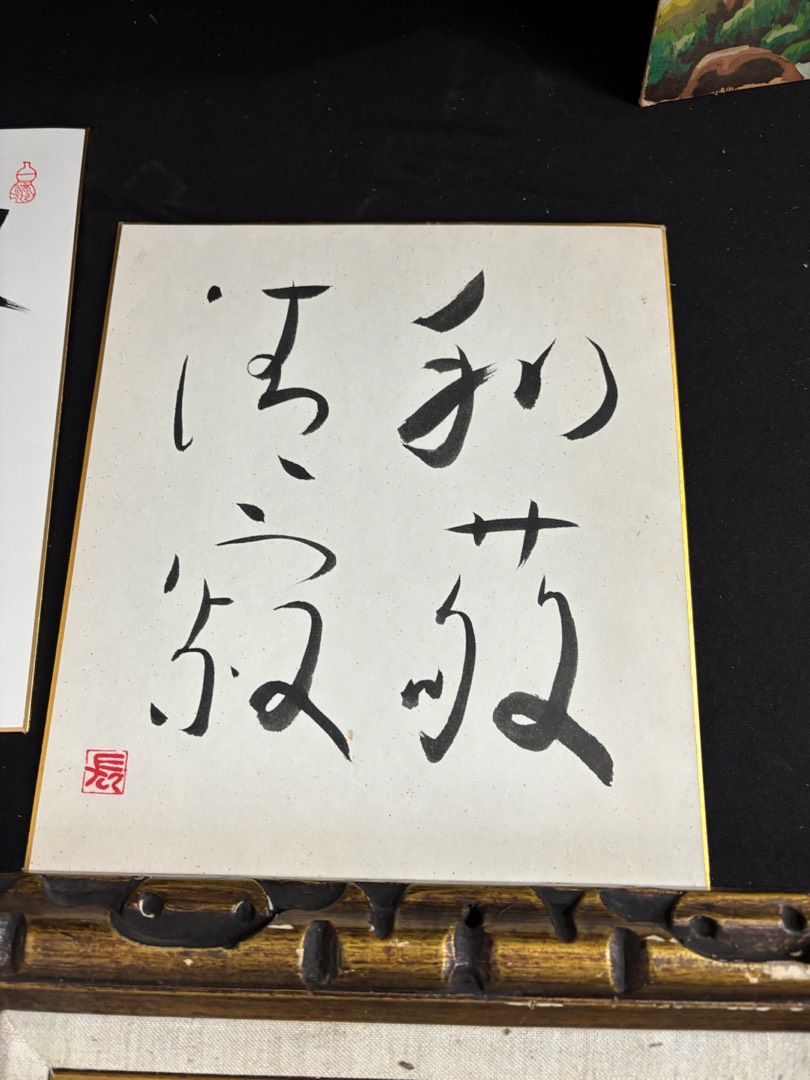 和敬
清寂
長